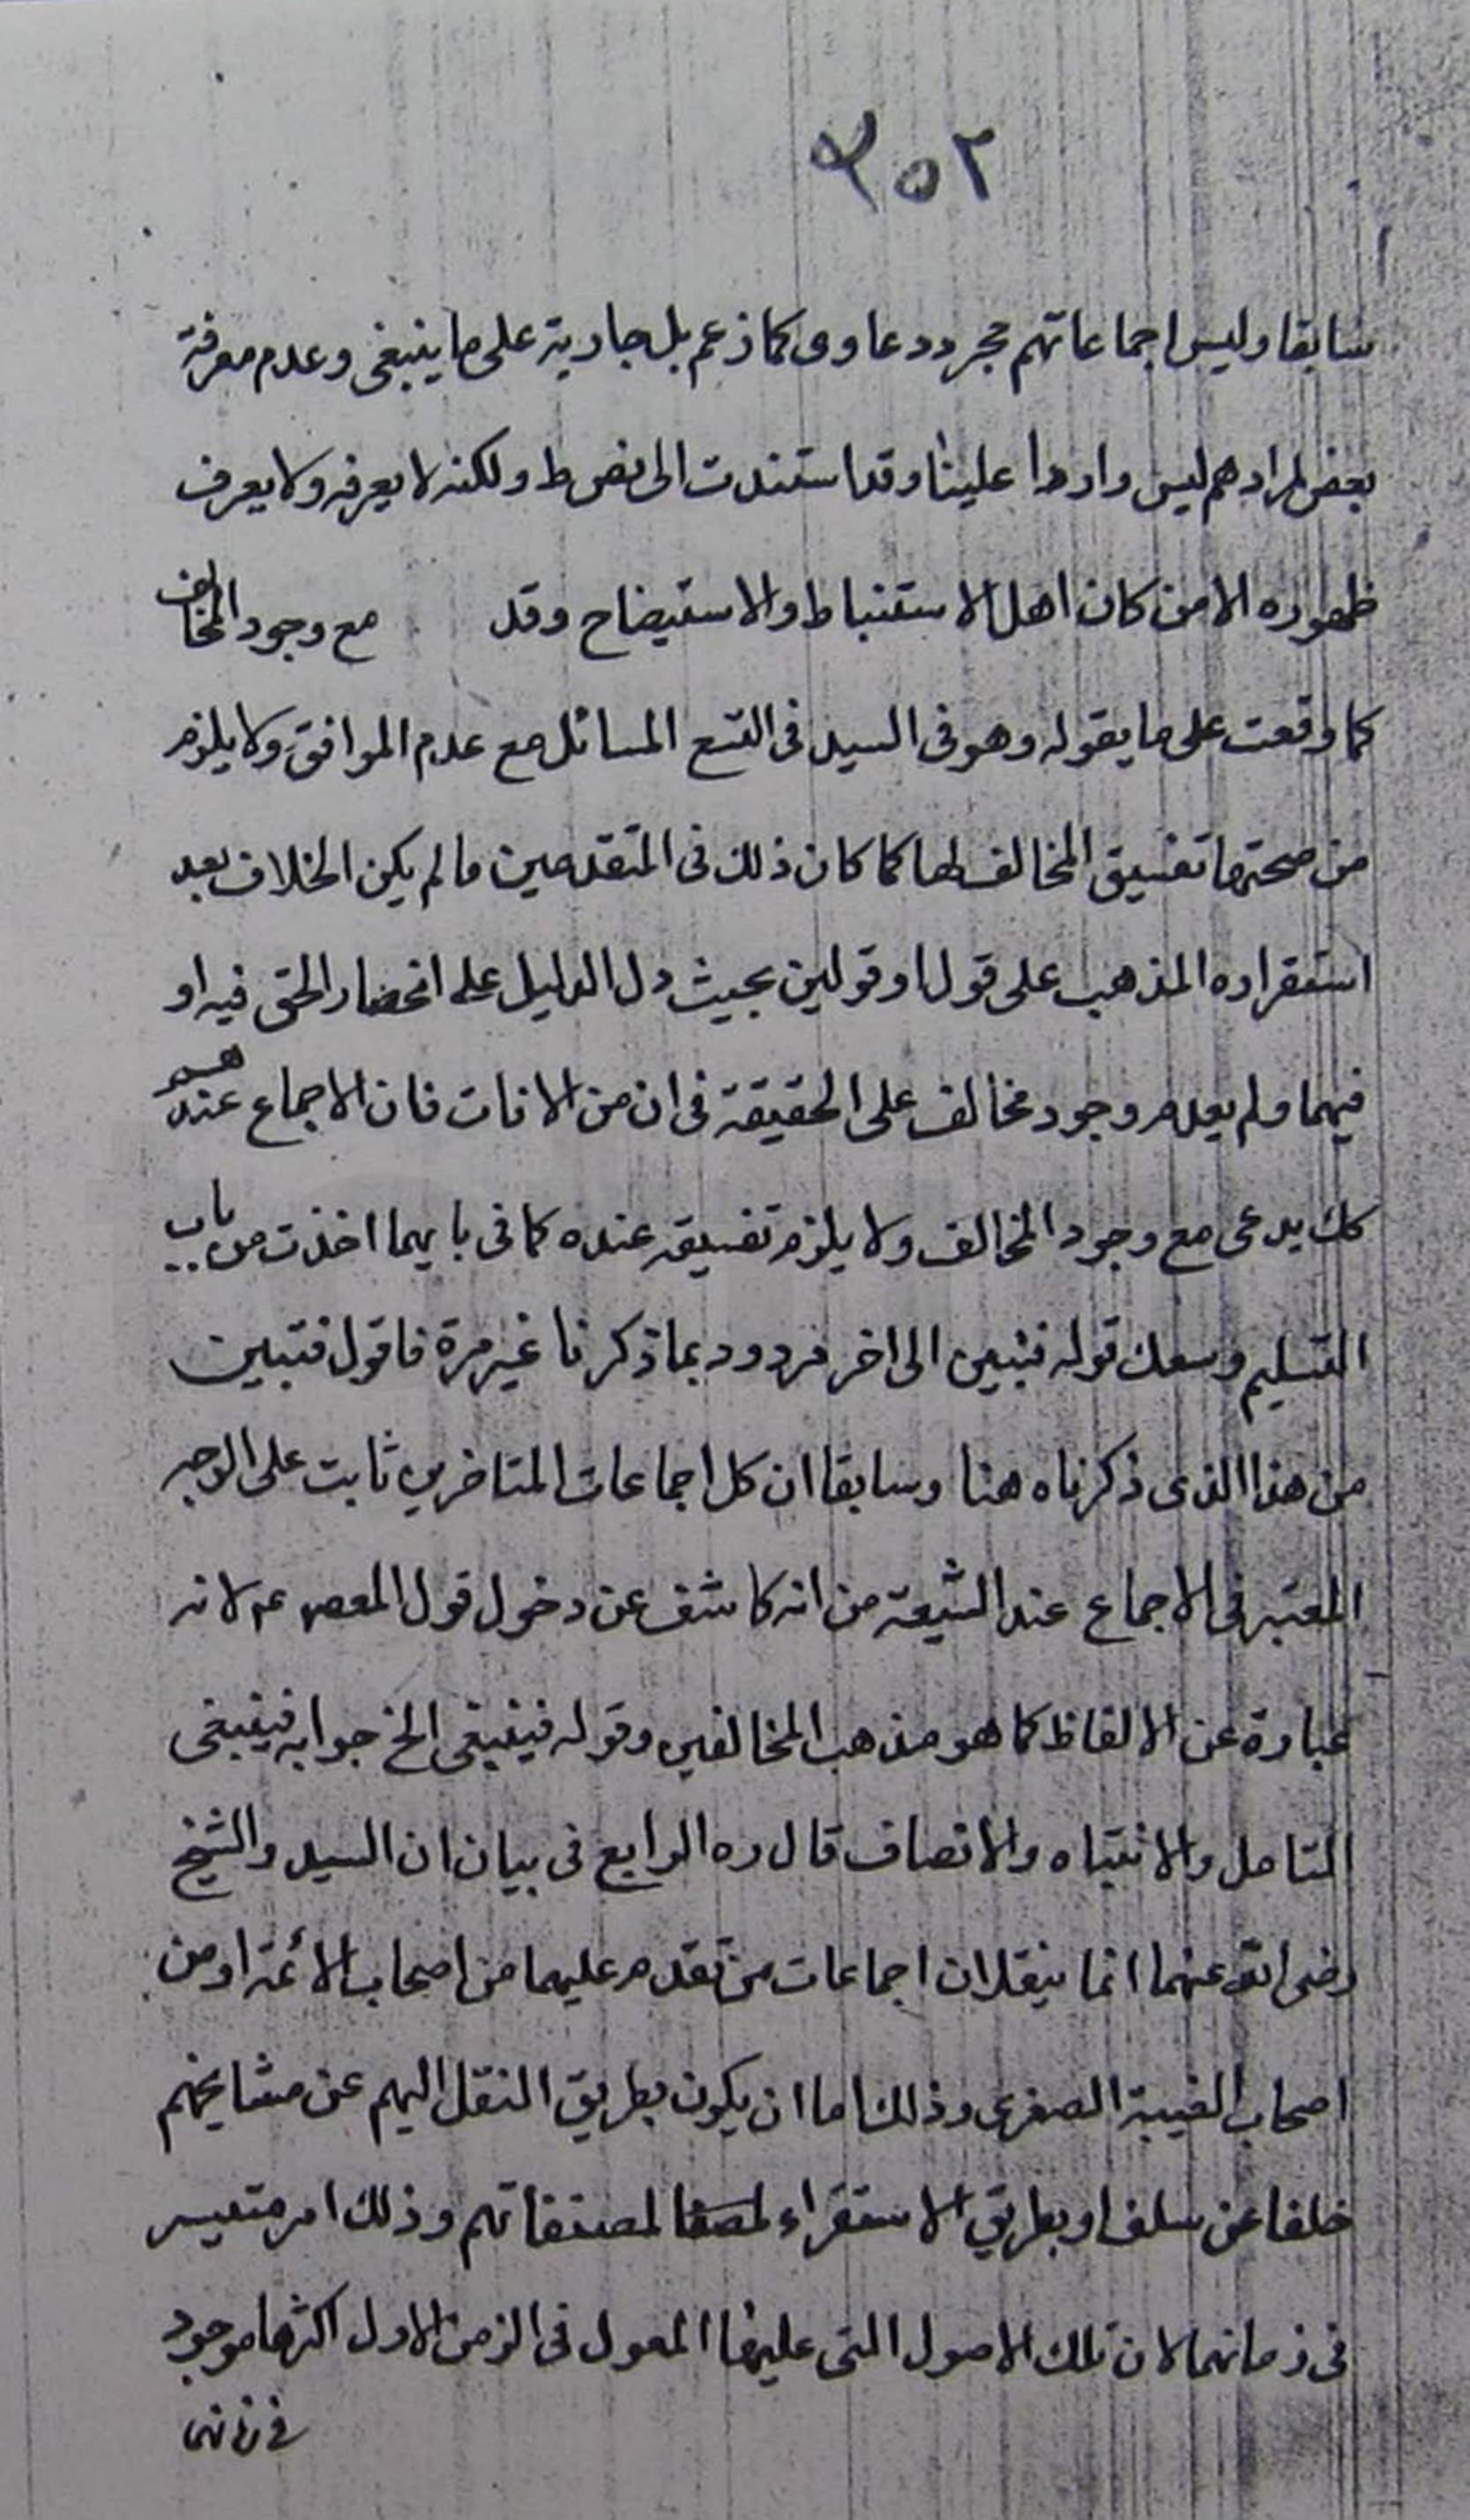 ٣٥٢
سابقا وليس اجماعاتهم مجرد دعاوى كما زعم بل جارية على ما ينبغى وعدم معرفة
بعض لمرادهم ليس واردا علينا وقد استندت الى نص ط ولكنه لا يعرفه ولا يعرف
ظهوره الا من كان اهل الاستنباط والاستيضاح وقد مع وجود المخالف
كما وقعت على ما يقوله وهو فى السيد فى التسع المسائل مع عدم الموافق ولا يلزم
من صحتها تفسيق المخالف لها كما كان ذلك فى المتقدمين ما لم يكن الخلاف بعد
استقراره المذهب على قول او قولين بحيث دل الدليل على انحصار الحق فيه او
فيهما ولم يعدم وجود مخالف على الحقيقة فى ان من الانات فان الاجماع عندهم
كك يدعى مع وجود المخالف ولا يلزم تفسيقه عنده كما فى بايهما اخذت من باب
التسليم وسعك قوله فتبين الى اخر مردود بما ذكرنا غير مرة فاقول فتبين
من هذا الذى ذكرناه هنا وسابقا ان كل اجماعات المتاخرين ثابت على الوجه
المعتبر فى الاجماع عند الشيعة من انه كاشف عن دخول قول المعصوم ع لا انه
عبارة عن الالفاظ كما هو مذهب المخالفين وقوله فينبغى الخ جوابه فينبغى
التامل والانتباه والانصاف قال ره الرابع فى بيان ان السيد والشيخ
رضى الله عنهما انما ينقلان اجماعات من تقدم عليهما من اصحاب الائمة او من
اصحاب الغيبة الصغرى وذلك اما ان يكون بطريق النقل اليهم عن مشايخهم
خلفا عن سلف او بطريق الاستقراء لمصنفاتهم وذلك امر متيسر
فى زمانهما لان تلك الاصول التى عليها المعول فى الزمن الاول اكثرها موجود
فى زمانهما